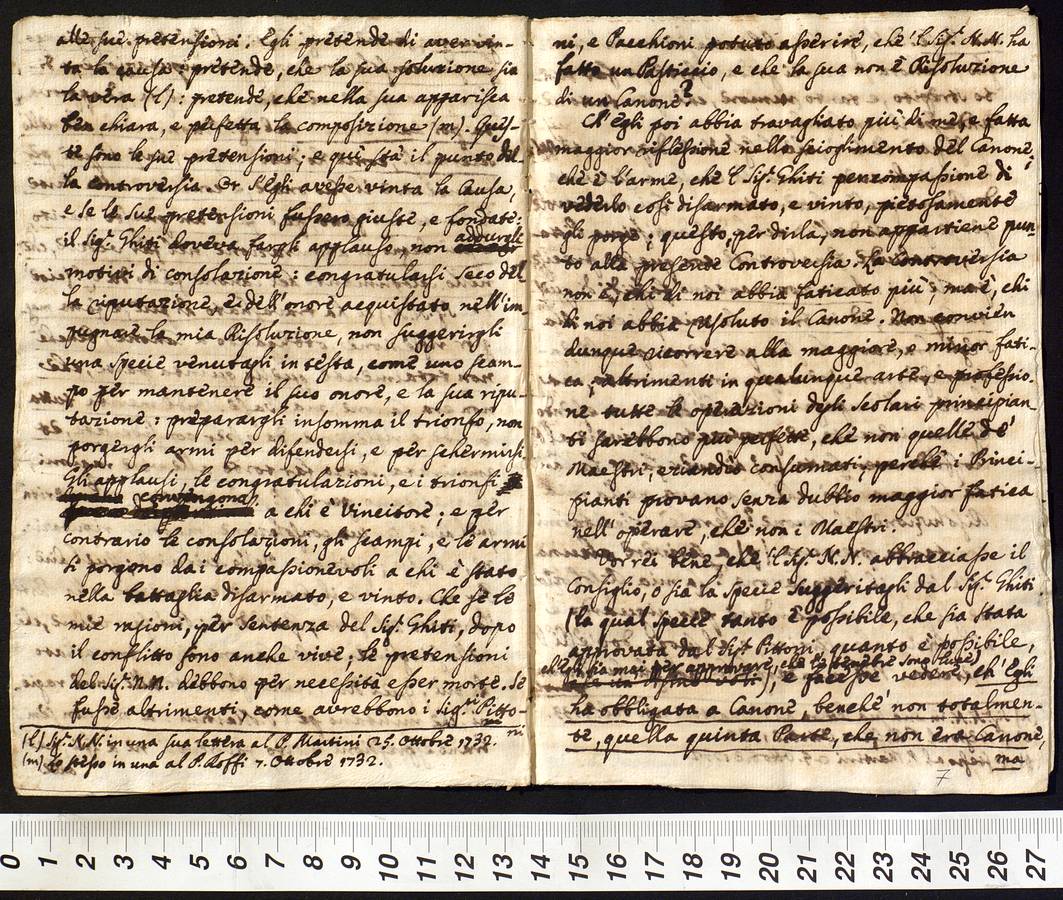 alle sue pretensioni. Egli pretende di aver vin-
ta la causa: pretende, che la sua soluzione sia
la vera (l): pretende, che nella sua apparisca
ben chiara, e perfetta la composizione (m). Ques-
te sono le sue pretensioni; e quì stà il punto del
la controversia. Or s'egli avesse vinta la Causa,
e se le sue pretensioni fussero giuste, e fondate:
il Sig.r Ghiti doveva fargli applauso, non addurgli
motivi di consolazione: congratularsi seco del
la riputazione, e dell'onore acquistato nell'im
pugnare la mia Risoluzione, non suggerirgli
una specie venutagli in testa, come uno scam-
po per mantenere il suo onore, e la sua ripu-
tazione: preparargli insomma il trionfo, non
porgergli armi per difendersi, e per schermirsi.
Gli applausi, le congratulazioni, e i trionfi
convengono
a chi è vincitore; e per
contrario le consolazioni, gli scampi, e le armi
si porgono dai compassionevoli a chi è stato
nella battaglia disarmato, e vinto. Che se le
mie ragioni, per sentenza del Sig.r Ghiti, dopo
il conflitto sono anche vive; le pretensioni
del Sig.r N.N. debbono per necessità esser morte. Se
fusse altrimenti, come avrebbono i Sig.ri Pitto-
ni
(l) Sig.r N.N. in una sua lettera al P. Martini 25. Ottobre 1732.
(m) Lo stesso in una al P. Roffi 7. Ottobre 1732.
ni, e Pacchioni potuto asserire, che 'l Sig.r N.N. ha
fatto un Pasticcio, e che la sua non è Risoluzione
di un Canone?
Ch'egli poi abbia travagliato più di me, e fatta
maggior riflessione nello scioglimento del Canone,
che è l'arme, che 'l Sig.r Ghiti per compassione di
vederlo così disarmato, e vinto, pietosamente
gli porge; questo, per dirla, non appartiene pun-
to alla presente Controversia. La Controversia
non è, chi di noi abbia faticato più; ma è, chi
di noi abbia risoluto il Canone. Non convien
dunque ricorrere alla maggiore, o minor fati-
ca; altrimenti in qualunque arte, e professio-
ne tutte le operazioni degli Scolari principian-
ti sarebbono più perfette, che non quelle de'
Maestri, eziandio consumati; perchè i Princi-
pianti provano senza dubbio maggior fatica
nell'operare, che non i Maestri.
Vorrei bene, che 'l Sig.r N.N. abbracciasse il
Consiglio, o sia la specie suggeritagli dal Sig.r Ghiti
(la qual specie tanto è possibile, che sia stata
approvata dal Sig.r Pittoni, quanto è possibile,
ch'egli sia mai per approvare, che le tenebre sono luce)
), e facesse vedere, ch'Egli
ha obbligata a Canone, benchè non totalmen-
te, quella quinta Parte, che non era Canone,
ma
7
0 1 2 3 4 5 6 7 8 9 10 11 12 13 14 15 16 17 18 19 20 21 22 23 24 25 26 27